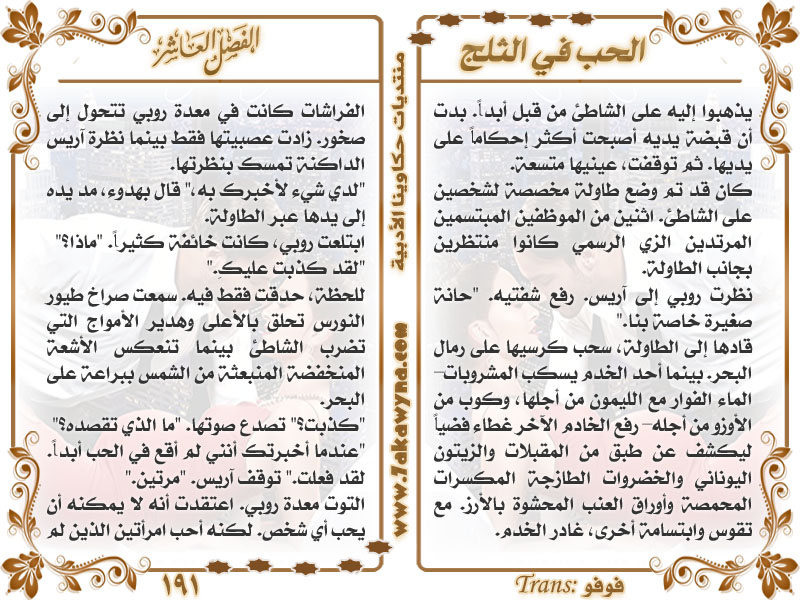 الحب في الثلج
يذهبوا إليه على الشاطئ من قبل أبداً. بدت
أن قبضة يديه أصبحت أكثر إحكاماً على
يديها. ثم توقفت، عينيها متسعة.
كان قد تم وضع طاولة مخصصة لشخصين
على الشاطئ. اثنين من الموظفين المبتسمين
المرتدين الزي الرسمي كانوا منتظرين
بجانب الطاولة.
نظرت روبي إلى آريس. رفع شفتيه. "حانة
صغيرة خاصة بنا."
قادها إلى الطاولة، سحب كرسيها على رمال
البحر. بينما أحد الخدم يسكب المشروبات–
الماء الفوار مع الليمون من أجلها، وكوب من
الأوزو من أجله– رفع الخادم الآخر غطاء فضياً
ليكشف عن طبق من المقبلات والزيتون
اليوناني والخضروات الطازجة المكسرات
المحمصة وأوراق العنب المحشوة بالأرز. مع
تقوس وابتسامة أخرى، غادر الخدم.
Trans: فوفو
منتديات حكاوينا الأدبية
www.7akawyna.com
الفصل العاشر
الفراشات كانت في معدة روبي تتحول إلى
صخور. زادت عصبيتها فقط بينما نظرة آريس
الداكنة تمسك بنظرتها.
"لدي شيء لأخبرك به،" قال بهدوء، مد يده
إلى يدها عبر الطاولة.
ابتلعت روبي، كانت خائفة كثيراً. "ماذا؟"
"لقد كذبت عليك."
للحظة، حدقت فقط فيه. سمعت صراخ طيور
النورس تحلق بالأعلى وهدير الأمواج التي
تضرب الشاطئ بينما تنعكس الأشعة
المنخفضة المنبعثة من الشمس ببراعة على
البحر.
"كذبت؟" تصدع صوتها. "ما الذي تقصده؟"
"عندما أخبرتك أنني لم أقع في الحب أبداً.
لقد فعلت." توقف آريس. "مرتين."
التوت معدة روبي. اعتقدت أنه لا يمكنه أن
يحب أي شخص. لكنه أحب امرأتين الذين لم
١٩١